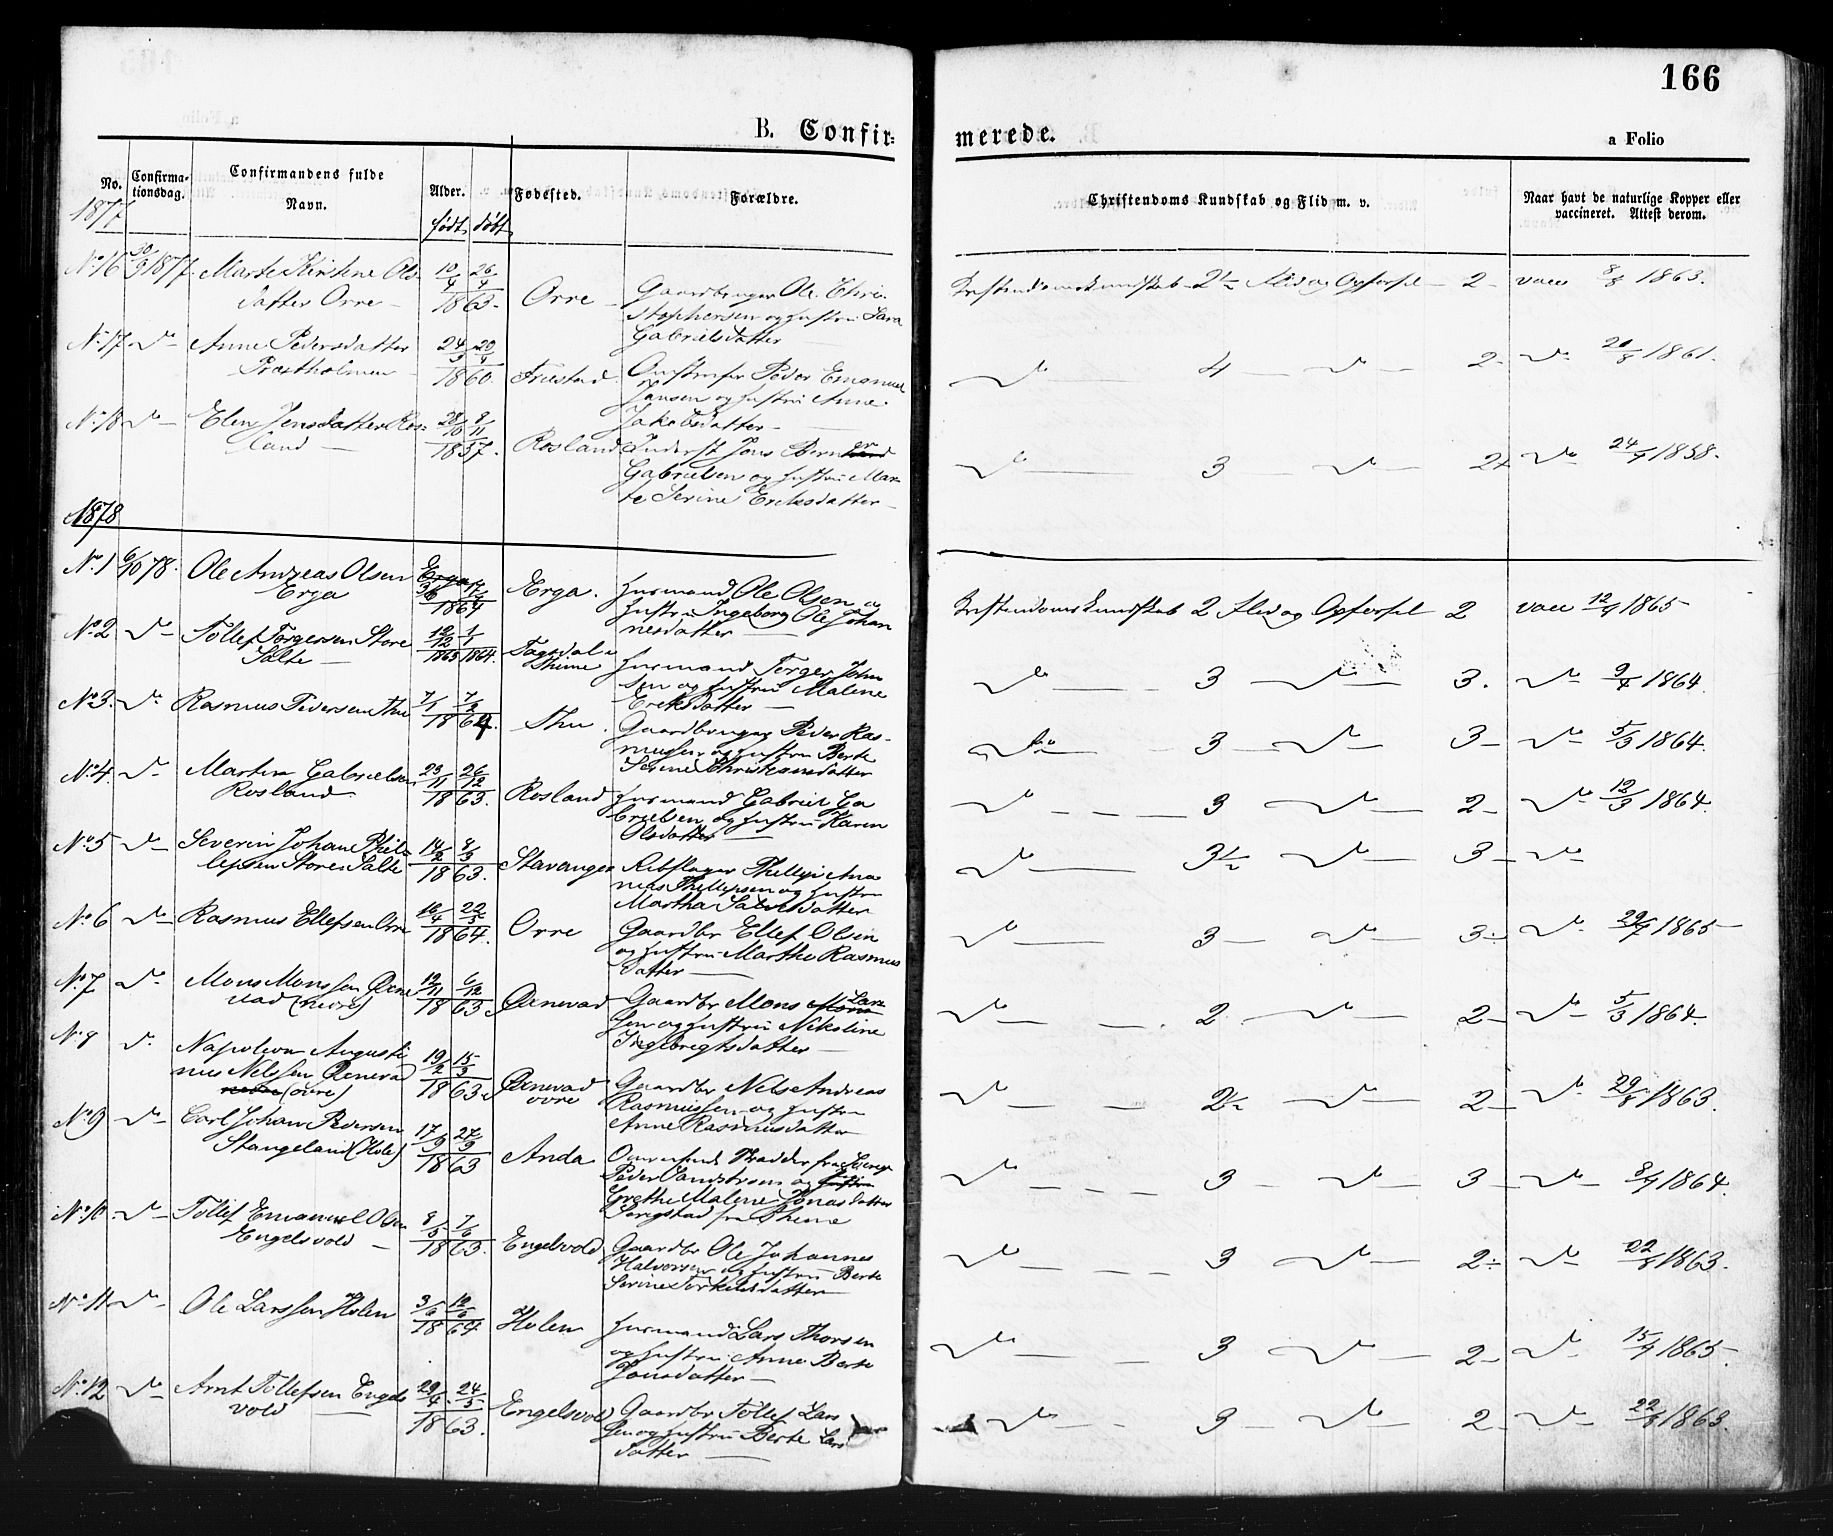 166
B. Confir=
merede.
a Folio
No.
Confirma-
tionsdag.
Confirmandens fulde
Navn.
Alder.
født
døbt
Fødested.
Forældre.
Christendoms Kundskab og Flid m. v.
Naar havt de naturlige Kopper eller
vaccineret. Attest derom.
1877
No 16 30/9 1877 Marte Kirstine Ols- 10/4 26/4
datter Orre — 1863. Orre — Gaardbruger Ole Chri-
stophersen og hustru Lara
Gabrielsdatter —
Kristendomskundskab 2½ Flid og Opførsel — 2 — vacc 8/8 1863.
No 17 do — Anne Pedersdatter 24/3 20/4
Præstholmen — 1860. Friestad. Peder Emanuel
Jansen og hustru Anne
Jakobsdatter —
do — 4 — do — 2 — do 20/8 1861.
No 18 do — Elen Jensdatter Ros- 28/10 8/11
land — 1857. Rosland Inderst Jens Bern
Gabrielsen og hustru Mar-
te Serine Eriksdatter —
do — 3 — do — 2 do 24/9 1858.
1878
No 1 6/10 78. Ole Andreas Olsen
Erga 1864 Erga. Husmand Ole Olsen og
hustru Ingeborg Ole Johan
nesdatter —
Kristendoms Kundskab 2 Flid og Opførsel 2 vacc 12/9 1865
No 2 do Tollef Torgersen Store 12/12 1/1
Salte — 1863 1864. Thime Husmand Torger John
sen og hustru Malene
Eriksdatter —
do — 3 — do — 3. do 9/4 1864.
No 3. do Rasmus Pedersen Thu 7/1 7/2
1864. Thu. Gaardbruger Peder Ras-
mussen og hustru Berte
Serine Christiansdatter
do — 3 — do — 3 — do 5/3 1864.
No 4. do Martin Gabrielsen 23/11 26/12
Rosland 1863. Rosland Husmand Gabriel Ga
brielsen og hustru Karen
Olsdatter —
do — 3 — do — 2 — do 12/3 1864.
No 5 do — Severin Johan Phil- 14/2 8/3
lipsen Store Salte 1863. Stavanger Rebslager Phellip Ana
nias Phellepsen og hustru
Martha Salvesdatter
do — 3½ do — 3 — do
No 6 do — Rasmus Ellefsen Orre 16/4 22/5
1864. Orre Gaardbr Ellef Olsen
og hustru Martha Rasmus
datter —
do — 3 — do — 3 — do 29/7 1865
No 7 do Mons Monssen Øxne 12/11 6/12
vad (nedre) 1863 Øxnevad Gaardbr Mons Lar-
sen og hustru Nikoline
Ingebregtsdatter —
do — 2 do — 2 — do 5/3 1864.
No 8 do Napoleon Augusti 19/2 15/3
nus Nelssen Øxnevad
(øvre) 1863 Øxnevad
øvre Gaardbr Nels Andreas
Rasmussen og hustru
Anne Rasmusdatter
do — 2½ do — 2 — do 29/8 1863.
No 9 do — Carl Johan Pedersen 17/9 27/9
Stangeland (Hole) 1863 Anda
Peder Sandstrøm og
Grethe Malene Jonasdatter
fra Thime
do — 3 — do — 3 — do 8/9 1864.
No 10 do — Tollef Emanuel Olsen 8/5 7/6
Engelsvold — 1863. Engelvold Gaardbr Ole Johannes
Halvorsen og hustru Berte
Serine Torkelsdatter
do — 3 do — 2 do 22/8 1863.
No 11 do — Ole Larssen Holen 3/6 12/6
1864 Holen Husmand Lars Thorsen
og hustru Anne Berte
Jonsdatter —
do — 3 do — 2 — do 15/9 1865.
No 12 do — Arnt Tollefsen Engels 29/4 24/5
vold — 1863. Engelsvold Gaardbr Tollef Lars
sen og hustru Berte Lars
datter —
do — 3 — do — 2 — do 22/8 1863.